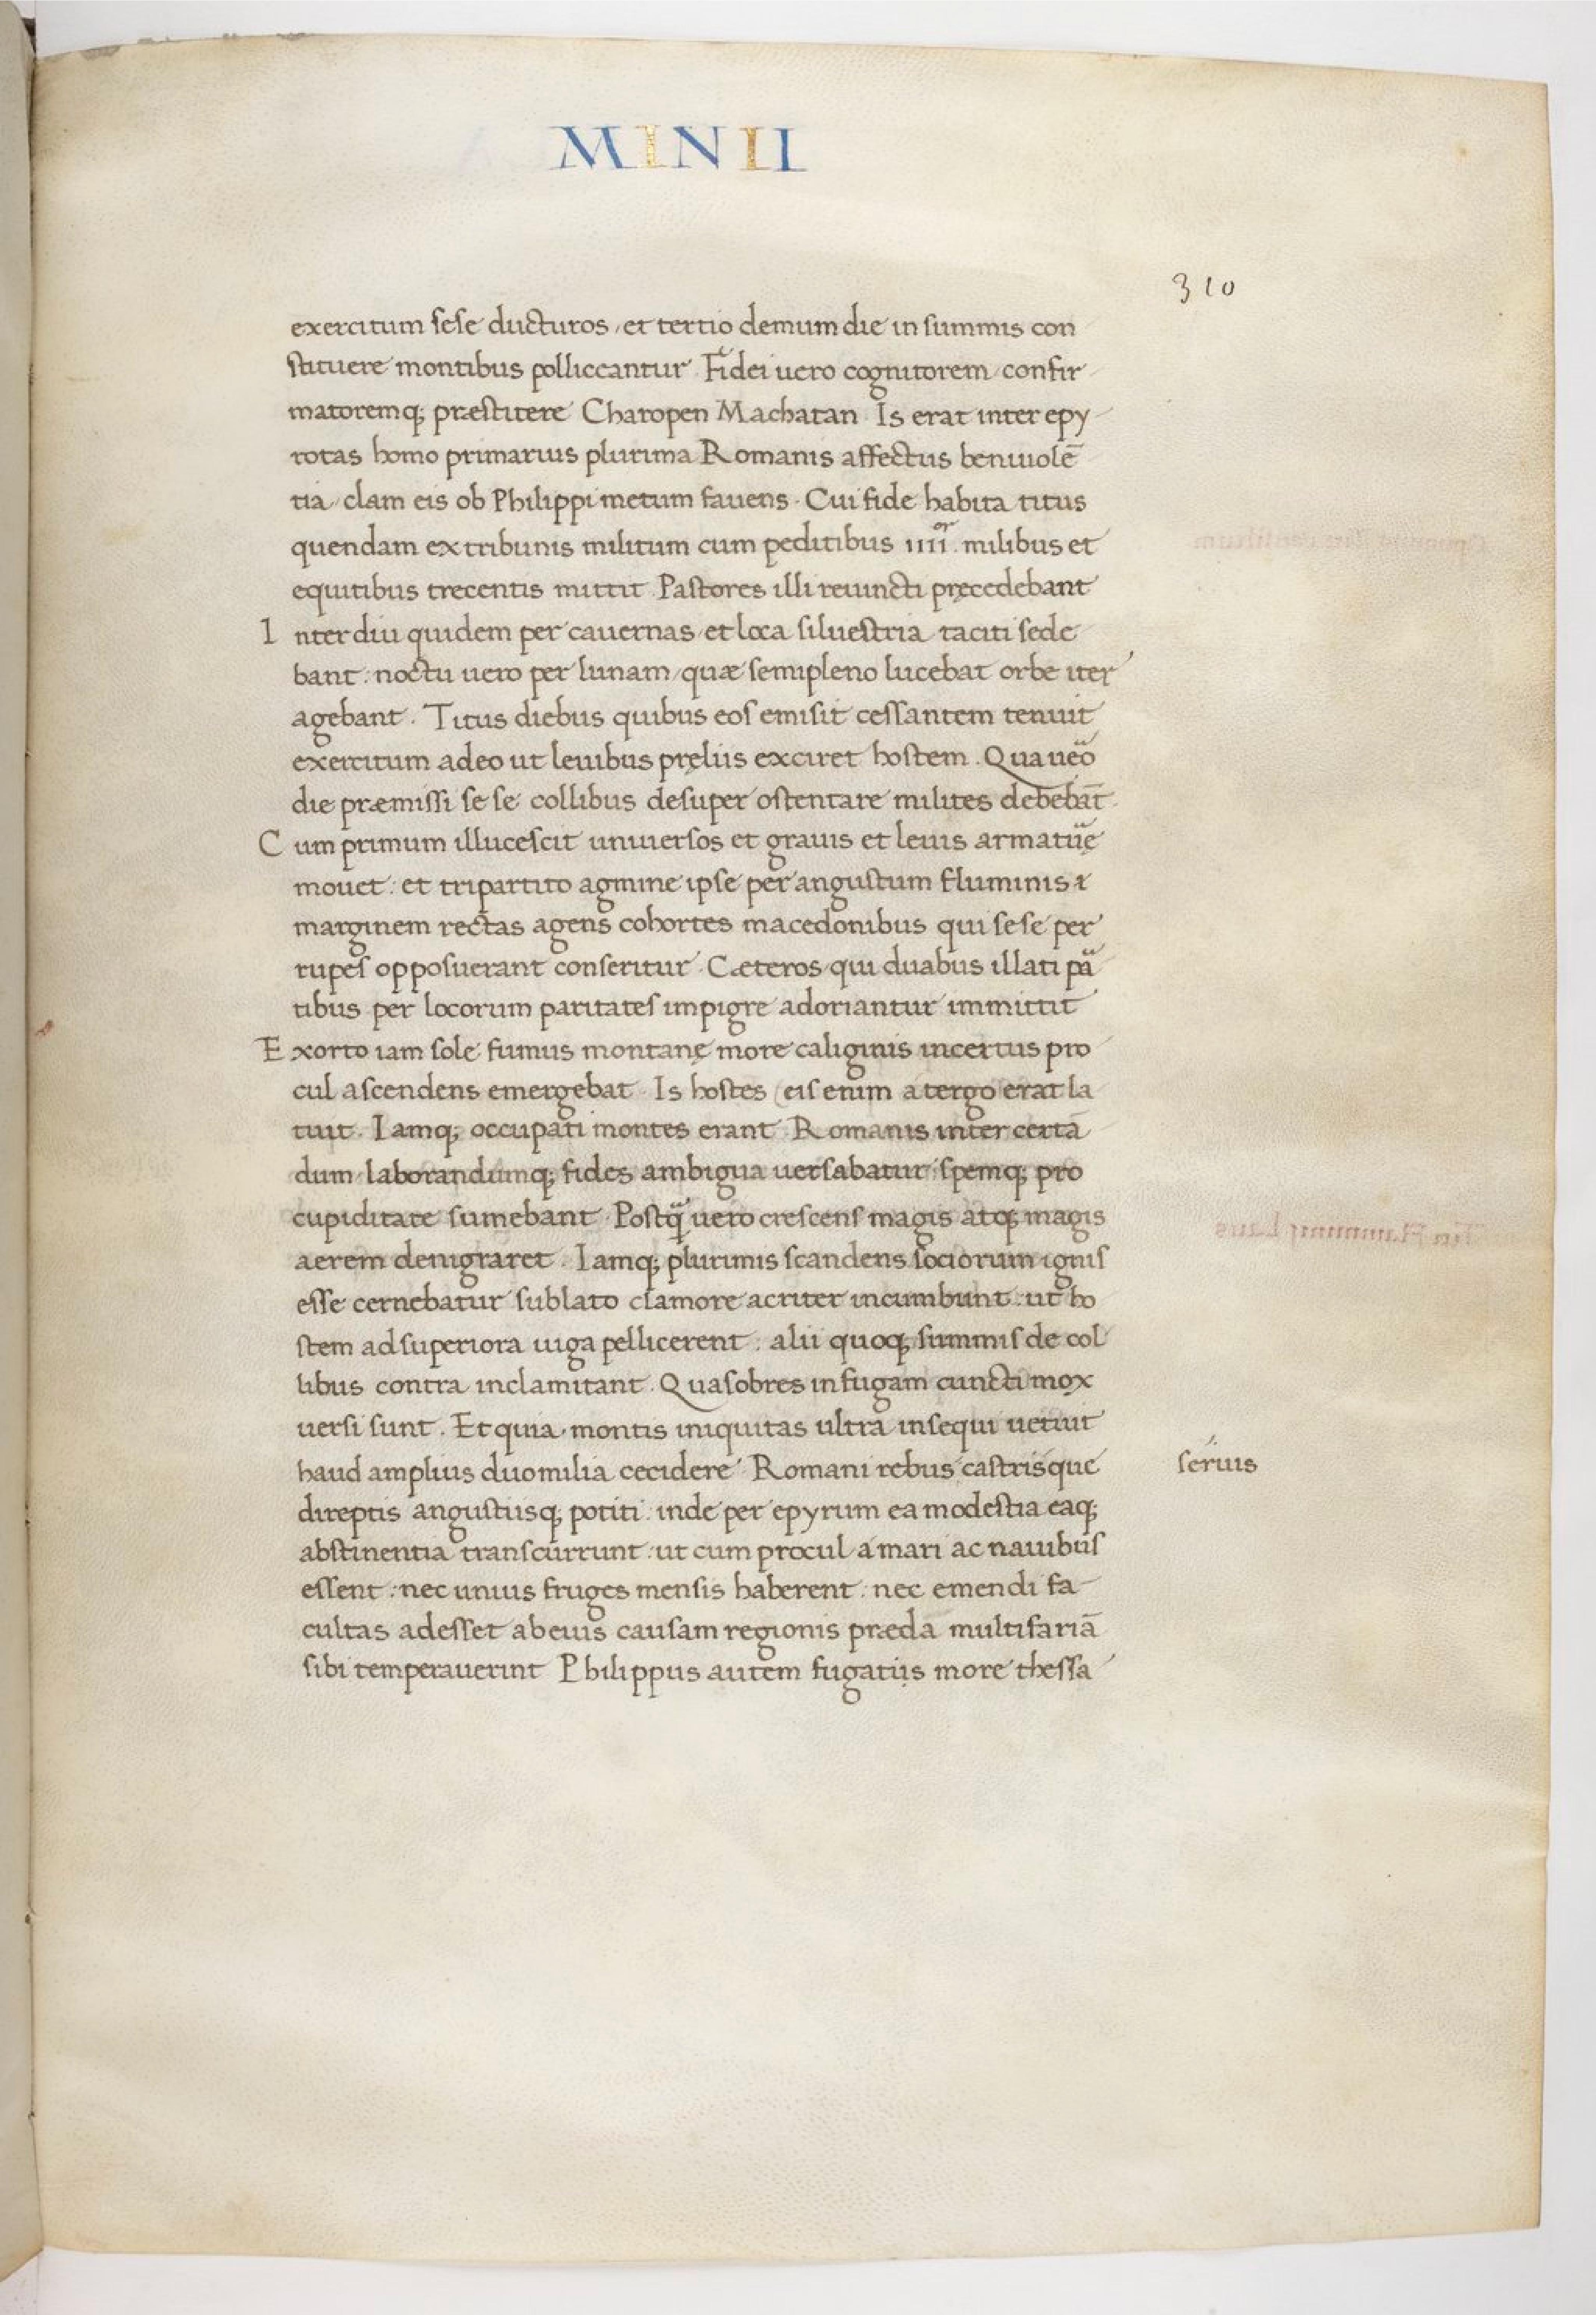 MINII
310
exercitum sese ducturos, et tertio demum die in summis con
stituere montibus polliceantur. Fidei uero cognitorem, confir
matoremq; præstitere Charopen Machatan. Is erat inter epy
rotas homo primarius plurima Romanis affectus beniuolē
tia, clam eis ob Philippi metum fauens. Cui fide habita titus
quendam ex tribunis militum cum peditibus iiii.or milibus et
equitibus trecentis mittit. Pastores illi reuincti pręcedebant
Inter diu quidem per cauernas, et loca siluestria taciti sede
bant: noctu uero per lunam, quæ semipleno lucebat orbe iter
agebant. Titus diebus quibus eos emisit cessantem tenuit
exercitum adeo ut leuibus pręliis exciret hostem. Qua ueo
die præmissi se se collibus desuper ostentare milites debebāt.
Cum primum illucescit uniuersos et grauis et leuis armatuę
mouet: et tripartito agmine ipse per angustum fluminis &
marginem rectas agens cohortes macedonibus qui se se per
rupes opposuerant conseritur. Cæteros, qui duabus illati pa
tibus per locorum paritates impigre adoriantur immittit
Exorto iam sole fumus montanę more caliginis incertus pro
cul ascendens emergebat. Is hostes (eis enim a tergo erat la
tuit. Iamq; occupati montes erant. Romanis inter certā
dum, laborandumq; fides ambigua uersabatur: spemq; pro
cupiditate sumebant. Postq̃ uero crescens magis atq; magis
aerem denigraret. Iamq; plurimis scandens sociorum ignis
esse cernebatur sublato clamore acriter incumbunt: ut ho
stem ad superiora uiga pellicerent: alii quoq; summis de col
libus contra inclamitant. Quasobres in fugam cuncti mox
uersi sunt. Et quia montis iniquitas ultra insequi uetuit
haud amplius duo milia cecidere. Romani rebus castrisque
seruis
direptis angustiisq; potiti: inde per epyrum ea modestia eaq;
abstinentia transcurrunt: ut cum procul a mari ac nauibus
essent: nec unius fruges mensis haberent: nec emendi fa
cultas adesset ab eius causam regionis præda multifariā
sibi temperauerint Philippus autem fugatiis more thessa